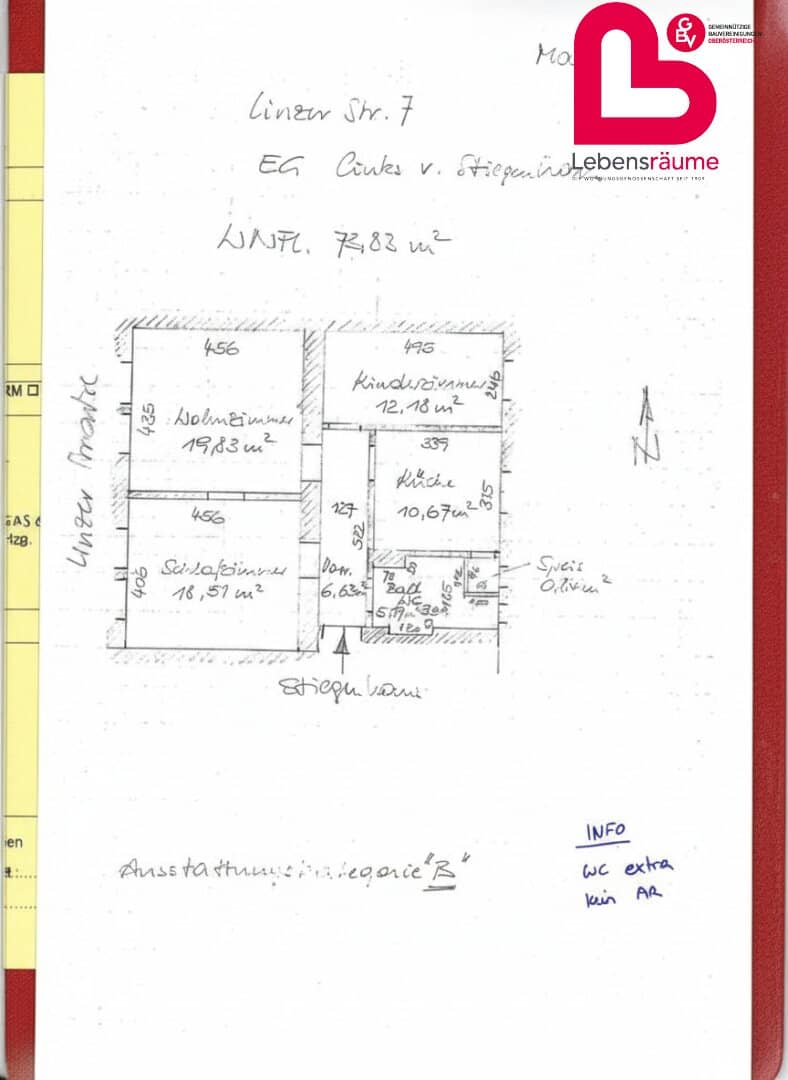 GEMEINNÜTZIGE
BAUVEREINIGUNGEN
OBERÖSTERREICH
GBV
Lebensräume
DIE WOHNUNGSGENOSSENSCHAFT SEIT 1909
Linzer Str. 7
EG links v. Stiegenhaus
WNFL. 73,83 m²
456
495
Kinderzimmer
12,18 m²
246
435
Wohnzimmer
19,83 m²
339
Küche
10,67 m²
315
Linzer Strasse
N
456
127
522
406
Schlafzimmer
18,51 m²
Vorr.
6,63 m²
Bad
WC
5,19 m²
165
120
Speis
Stiegenhaus
Ausstattungskategorie "B"
INFO
WC extra
kein AR
RM
GAS